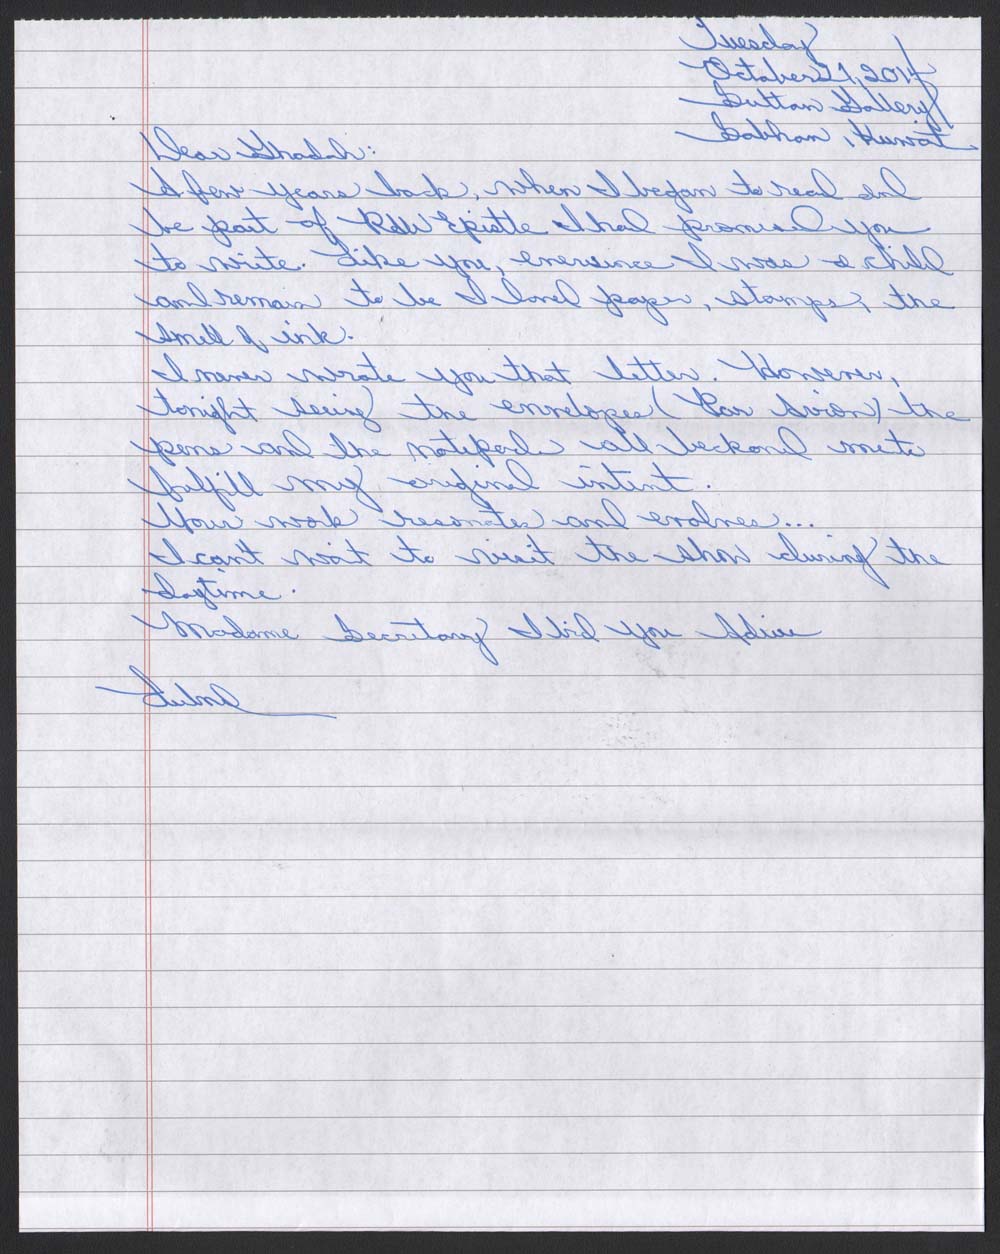 Tuesday
October 21, 2014
Sultan Gallery
Sabhan, Kuwait
Dear Ghadah:
A few years back, when I began to read and
be part of R&W Epistle I had promised you
to write. Like you, eversince I was a child
and remain to be I loved paper, stamps, the
smell of ink.
I never wrote you that letter. However,
tonight seeing the envelopes (Par Avion) the
pens and the notepads all beckoned me to
fulfill my original intent.
Your work resonates and evolves...
I can't wait to visit the show during the
daytime.
Madame Secretary I bid you Adieu